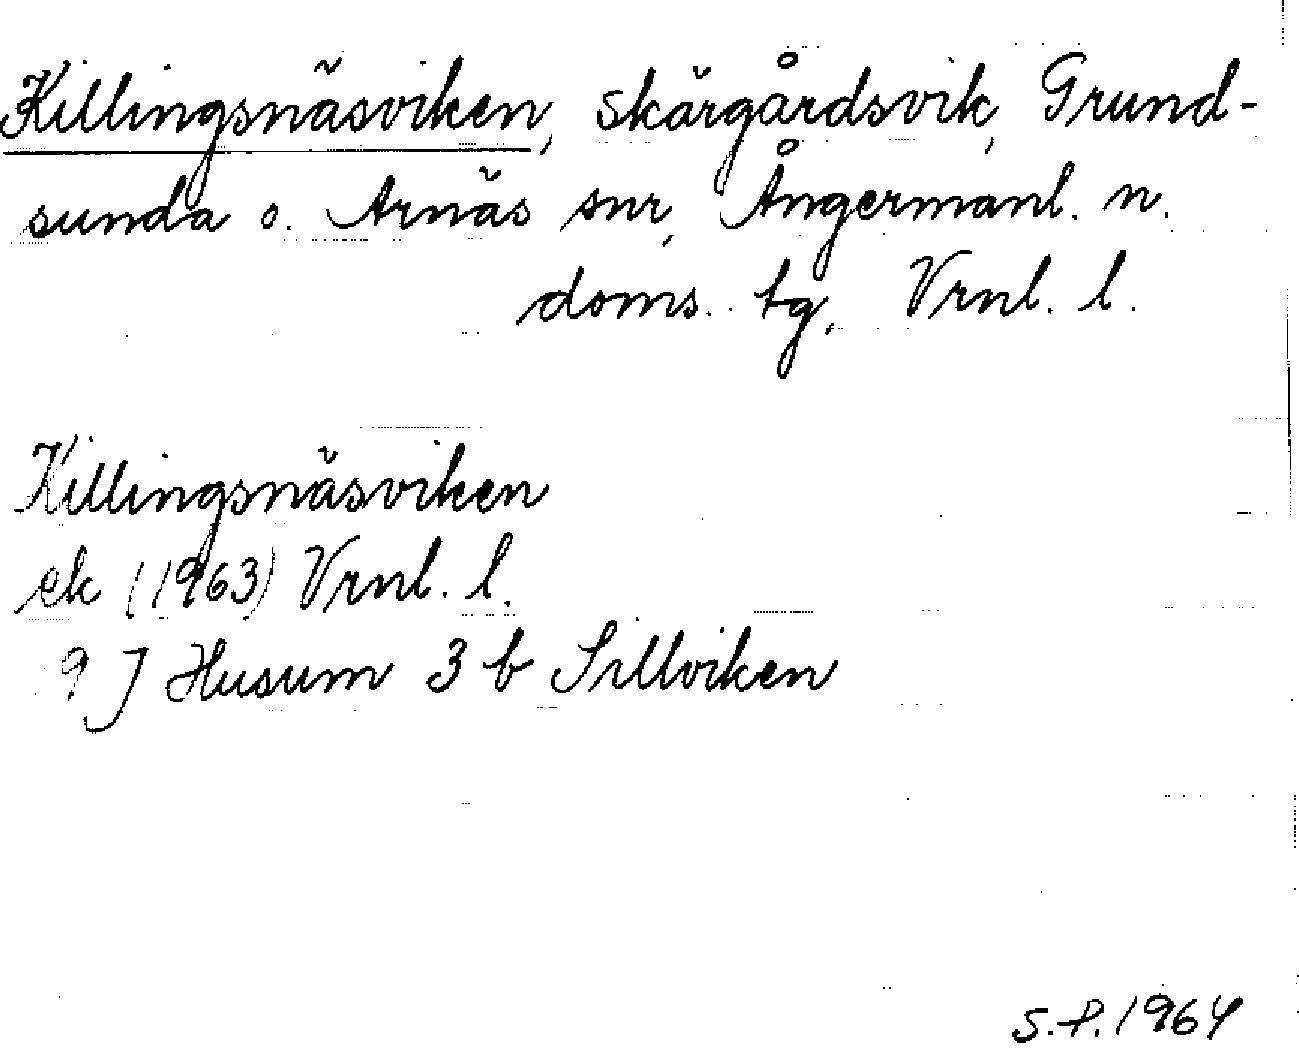 Killingsnäsviken, skärgårdsvik, Grund-
sunda o. Arnäs snr, Ångermanl. n.
doms. tg, Vrnl. l.
Killingsnäsviken
ek (1963) Vrnl. l.
9 J Husum 3 b Sillviken
S.P. 1964